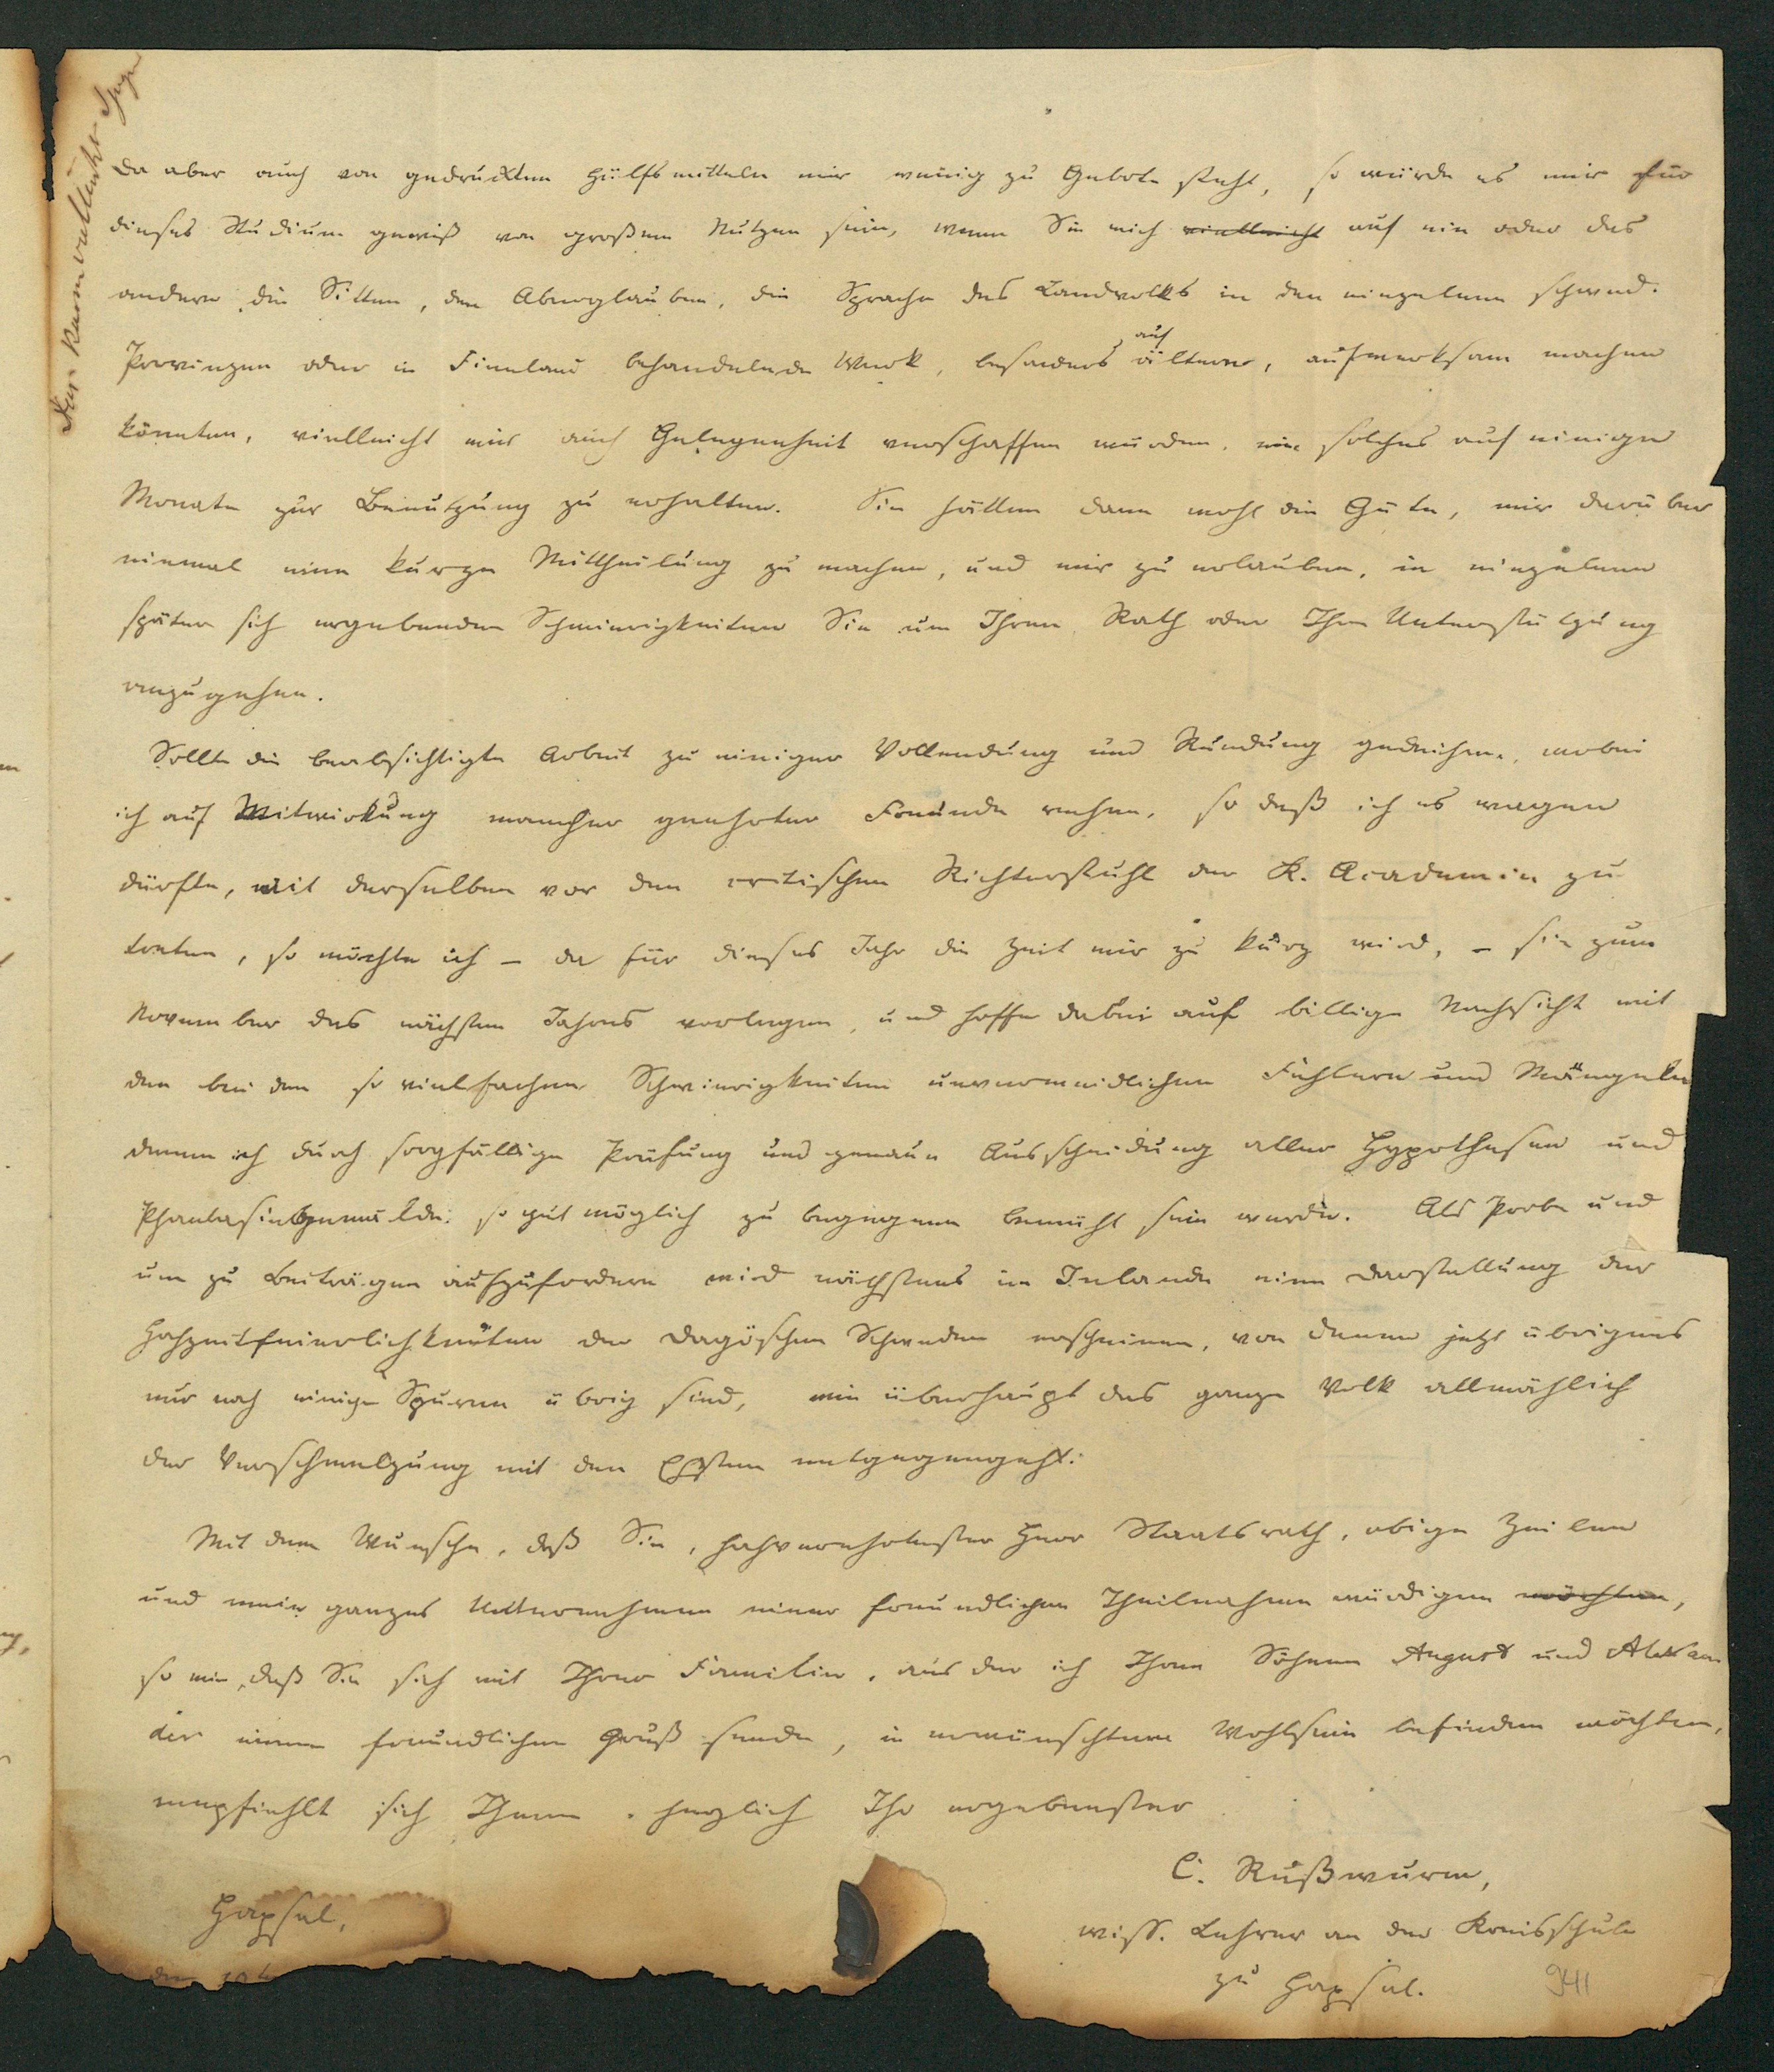 da aber auch von gedruckten Hülfsmitteln mir wenig zu Gebote steht, so würde es mir für
dieses Studium gewiß von großem Nutzen sein, wenn Sie mich vielleicht auf ein oder das
andere die Sitten, den Aberglauben, die Sprache des Landvolks in den einzelnen schwed.
Provinzen oder in Finnland behandelnde Werk, besonders auf ältere, aufmerksam machen
könnten, vielleicht mir auch Gelegenheit verschaffen würden, ein solches auf einige
Monate zur Benutzung zu erhalten. Sie hätten dann wohl die Güte, mir darüber
einmal eine kurze Mittheilung zu machen, und mir zu erlauben, in einzelnen
später sich ergebenden Schwierigkeiten Sie um Ihren Rath oder Ihre Unterstützung
anzugehen.
Sollte die beabsichtigte Arbeit zu einiger Vollendung und Rundung gedeihen, wobei
ich auf Mitwirkung mancher geehrter Freunde rechne, so daß ich es wagen
dürfte, mit derselben vor den critischen Richterstuhl der K. Academie zu
treten, so möchte ich – da für dieses Jahr die Zeit mir zu kurz wird, – sie zum
November des nächsten Jahres vorlegen, und hoffe dabei auf billige Nachsicht mit
den bei den so vielfachen Schwierigkeiten unvermeidlichen Fehlern und Mängeln
denen ich durch sorgfältige Prüfung und genaue Ausscheidung aller Hypothesen und
Phantasiegemälde so gut möglich zu begegnen bemüht sein werde. Als Probe und
um zu Beiträgen aufzufordern wird nächstens im Inlande eine Darstellung der
Hochzeitfeierlichkeiten der Dagöschen Schweden erscheinen, von denen jetzt übrigens
nur noch einige Spuren übrig sind, wie überhaupt das ganze Volk allmählich
der Verschmelzung mit den Ehsten entgegengeht.
Mit dem Wunsche, daß Sie, hochverehrtester Herr Staatsrath, obige Zeilen
und mein ganzes Unternehmen einer freundlichen Theilnahme würdigen möchten,
so wie, daß Sie sich mit Ihrer Familie, aus der ich Ihren Söhnen August und Alexan
der einen freundlichen Gruß sende, in erwünschtem Wohlsein befinden möchten,
empfiehlt sich Ihnen herzlich Ihr ergebenster
C. Rußwurm,
Hapsal,
wiss. Lehrer an der Kreisschule
den 10
zu Hapsal.
941